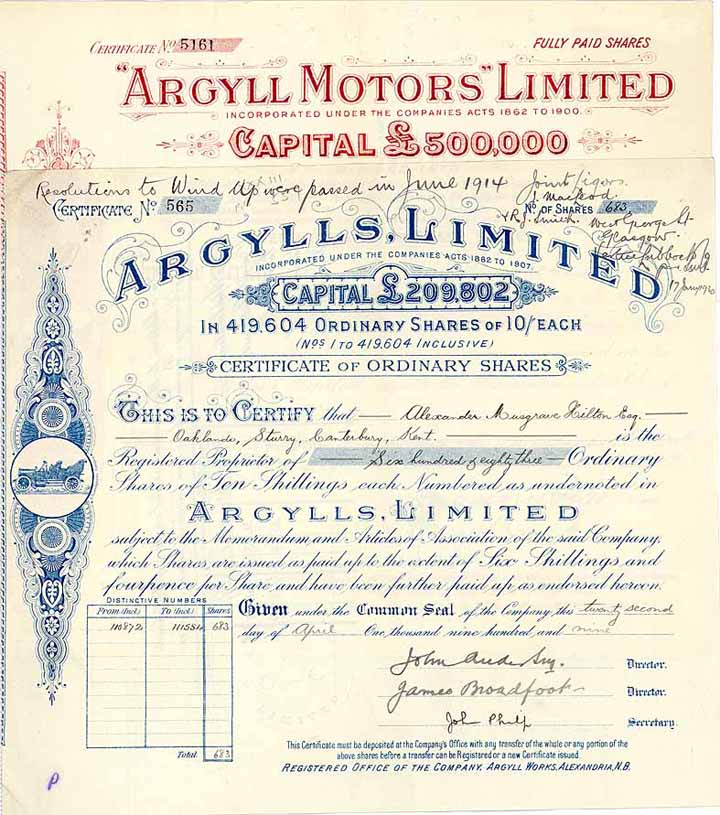 CERTIFICATE No. 5161
FULLY PAID SHARES
"ARGYLL MOTORS" LIMITED
INCORPORATED UNDER THE COMPANIES ACTS 1862 TO 1900.
CAPITAL £500,000
Resolutions to Wind Up were passed in June 1914
CERTIFICATE No. 565
No. OF SHARES 683
Glasgow
ARGYLLS, LIMITED
INCORPORATED UNDER THE COMPANIES ACTS 1862 TO 1907.
CAPITAL £209,802
IN 419,604 ORDINARY SHARES OF 10/ EACH
(Nos 1 TO 419,604 INCLUSIVE)
CERTIFICATE OF ORDINARY SHARES
THIS IS TO CERTIFY that Alexander Musgrave Hilton Esq.
Oaklands, Sturry, Canterbury, Kent. is the
Registered Proprietor of Six hundred & eighty three Ordinary
Shares of Ten Shillings each Numbered as undernoted in
ARGYLLS, LIMITED
subject to the Memorandum and Articles of Association of the said Company,
which Shares are issued as paid up to the extent of Six Shillings and
fourpence per Share and have been further paid up as endorsed hereon.
DISTINCTIVE NUMBERS
From (Incl.) To (Incl.) Shares
110872 111554 683
Total 683
Given under the Common Seal of the Company, this twenty second
day of April One thousand nine hundred and nine
Director.
James Broadfoot Director.
John Philp Secretary.
This Certificate must be deposited at the Company's Office with any transfer of the whole or any portion of the
above shares before a transfer can be Registered or a new Certificate issued.
REGISTERED OFFICE OF THE COMPANY, ARGYLL WORKS, ALEXANDRIA, N.B.
P